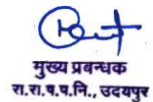 मुख्य प्रबन्धक
रा.रा.प.प.नि., उदयपुर